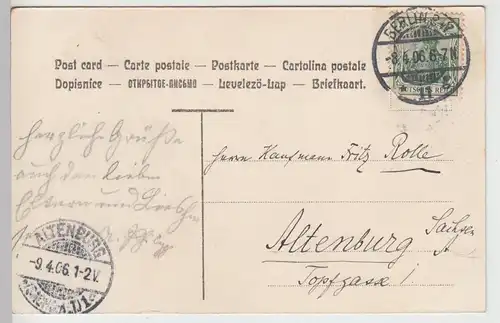 Post card — Carte postale — Postkarte — Cartolina postale
Dopisnice — ОТКРЫТОЕ-ПИСЬМО — Levelező-Lap — Briefkaart.
BERLIN S.W.
-8.4.06. 6-7 V.
11
DEUTSCHES REICH
Herzliche Grüße
auch den lieben
Eltern und
Herrn Kaufmann Fritz Rolle
Altenburg
Sachsen
A
Topfgasse 1
ALTENBURG
-9.4.06. 1-2 V.